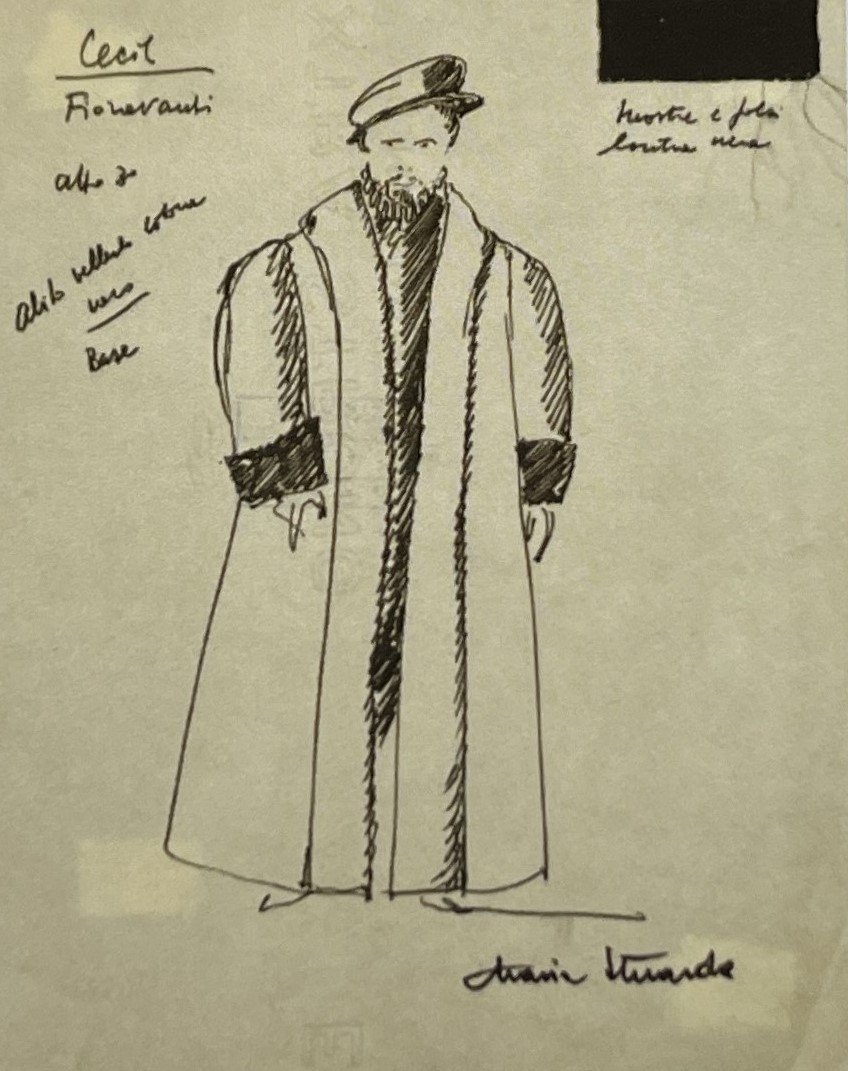 Cecil
Fioravanti
abito velluto cotone
nero
Base
Mostre e
lontra nera
Maria Stuarda